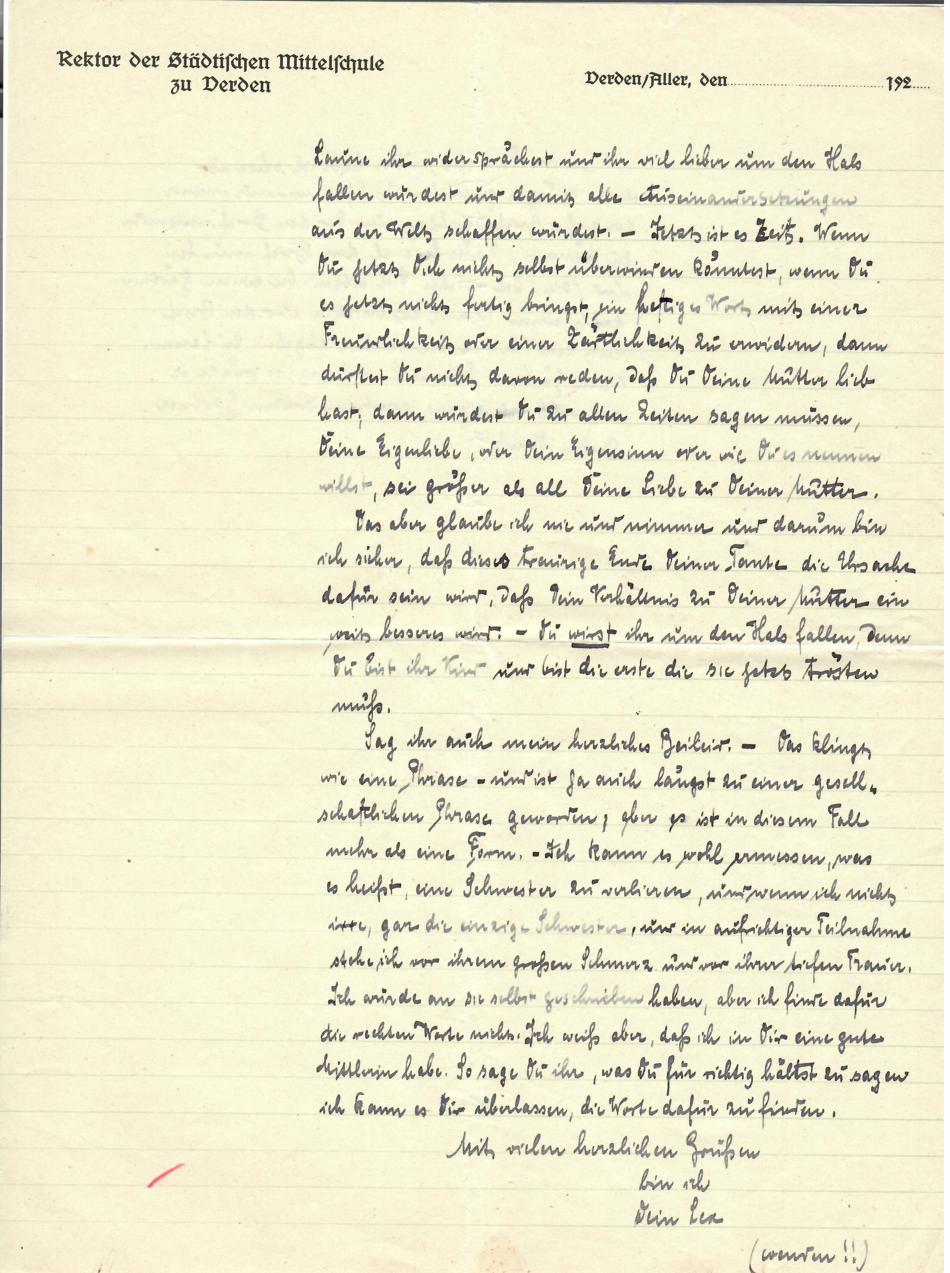 Rektor der Städtischen Mittelschule
zu Verden
Verden/Aller, den 192
Laune ihr widersprächest und ihr viel lieber um den Hals
fallen würdest und damit alle Auseinandersetzungen
aus der Welt schaffen würdest. – Jetzt ist es Zeit. Wenn
Du jetzt Dich nicht selbst überwinden könntest, wenn Du
es jetzt nicht fertig bringst, ein heftiges Wort mit einer
Freundlichkeit oder einer Zärtlichkeit zu erwidern, dann
dürftest Du nicht davon reden, daß Du Deine Mutter lieb
hast; dann würdest Du zu allen Zeiten sagen müssen,
Deine Eigenliebe, oder Dein Eigensinn oder wie Du es nennen
willst, sei größer als all Deine Liebe zu Deiner Mutter.
Das aber glaube ich nie und nimmer und darum bin
ich sicher, daß dieses traurige Ende Deiner Tante die Ursache
dafür sein wird, daß Dein Verhältnis zu Deiner Mutter ein
weit besseres wird. – Du wirst ihr um den Hals fallen, denn
Du bist ihr Kind und bist die erste die sie jetzt trösten
muß.
Sag ihr auch mein herzliches Beileid. – Das klingt
wie eine Phrase – und ist ja auch längst zu einer gesell„
schaftlichen Phrase geworden; aber es ist in diesem Fall
mehr als eine Form. – Ich kann es wohl ermessen, was
es heißt, eine Schwester zu verlieren, und wenn ich nicht
irre, gar die einzige Schwester, und in aufrichtiger Teilnahme
stehe ich vor ihrem großen Schmerz und vor ihrer tiefen Trauer.
Ich würde an sie selbst geschrieben haben, aber ich finde dafür
die rechten Worte nicht. Ich weiß aber, daß ich in Dir eine gute
Mittlerin habe. So sage Du ihr, was Du für richtig hältst zu sagen
ich kann es Dir überlassen, die Worte dafür zu finden.
Mit vielen herzlichen Grüßen
bin ich
Dein
(wenden !!)